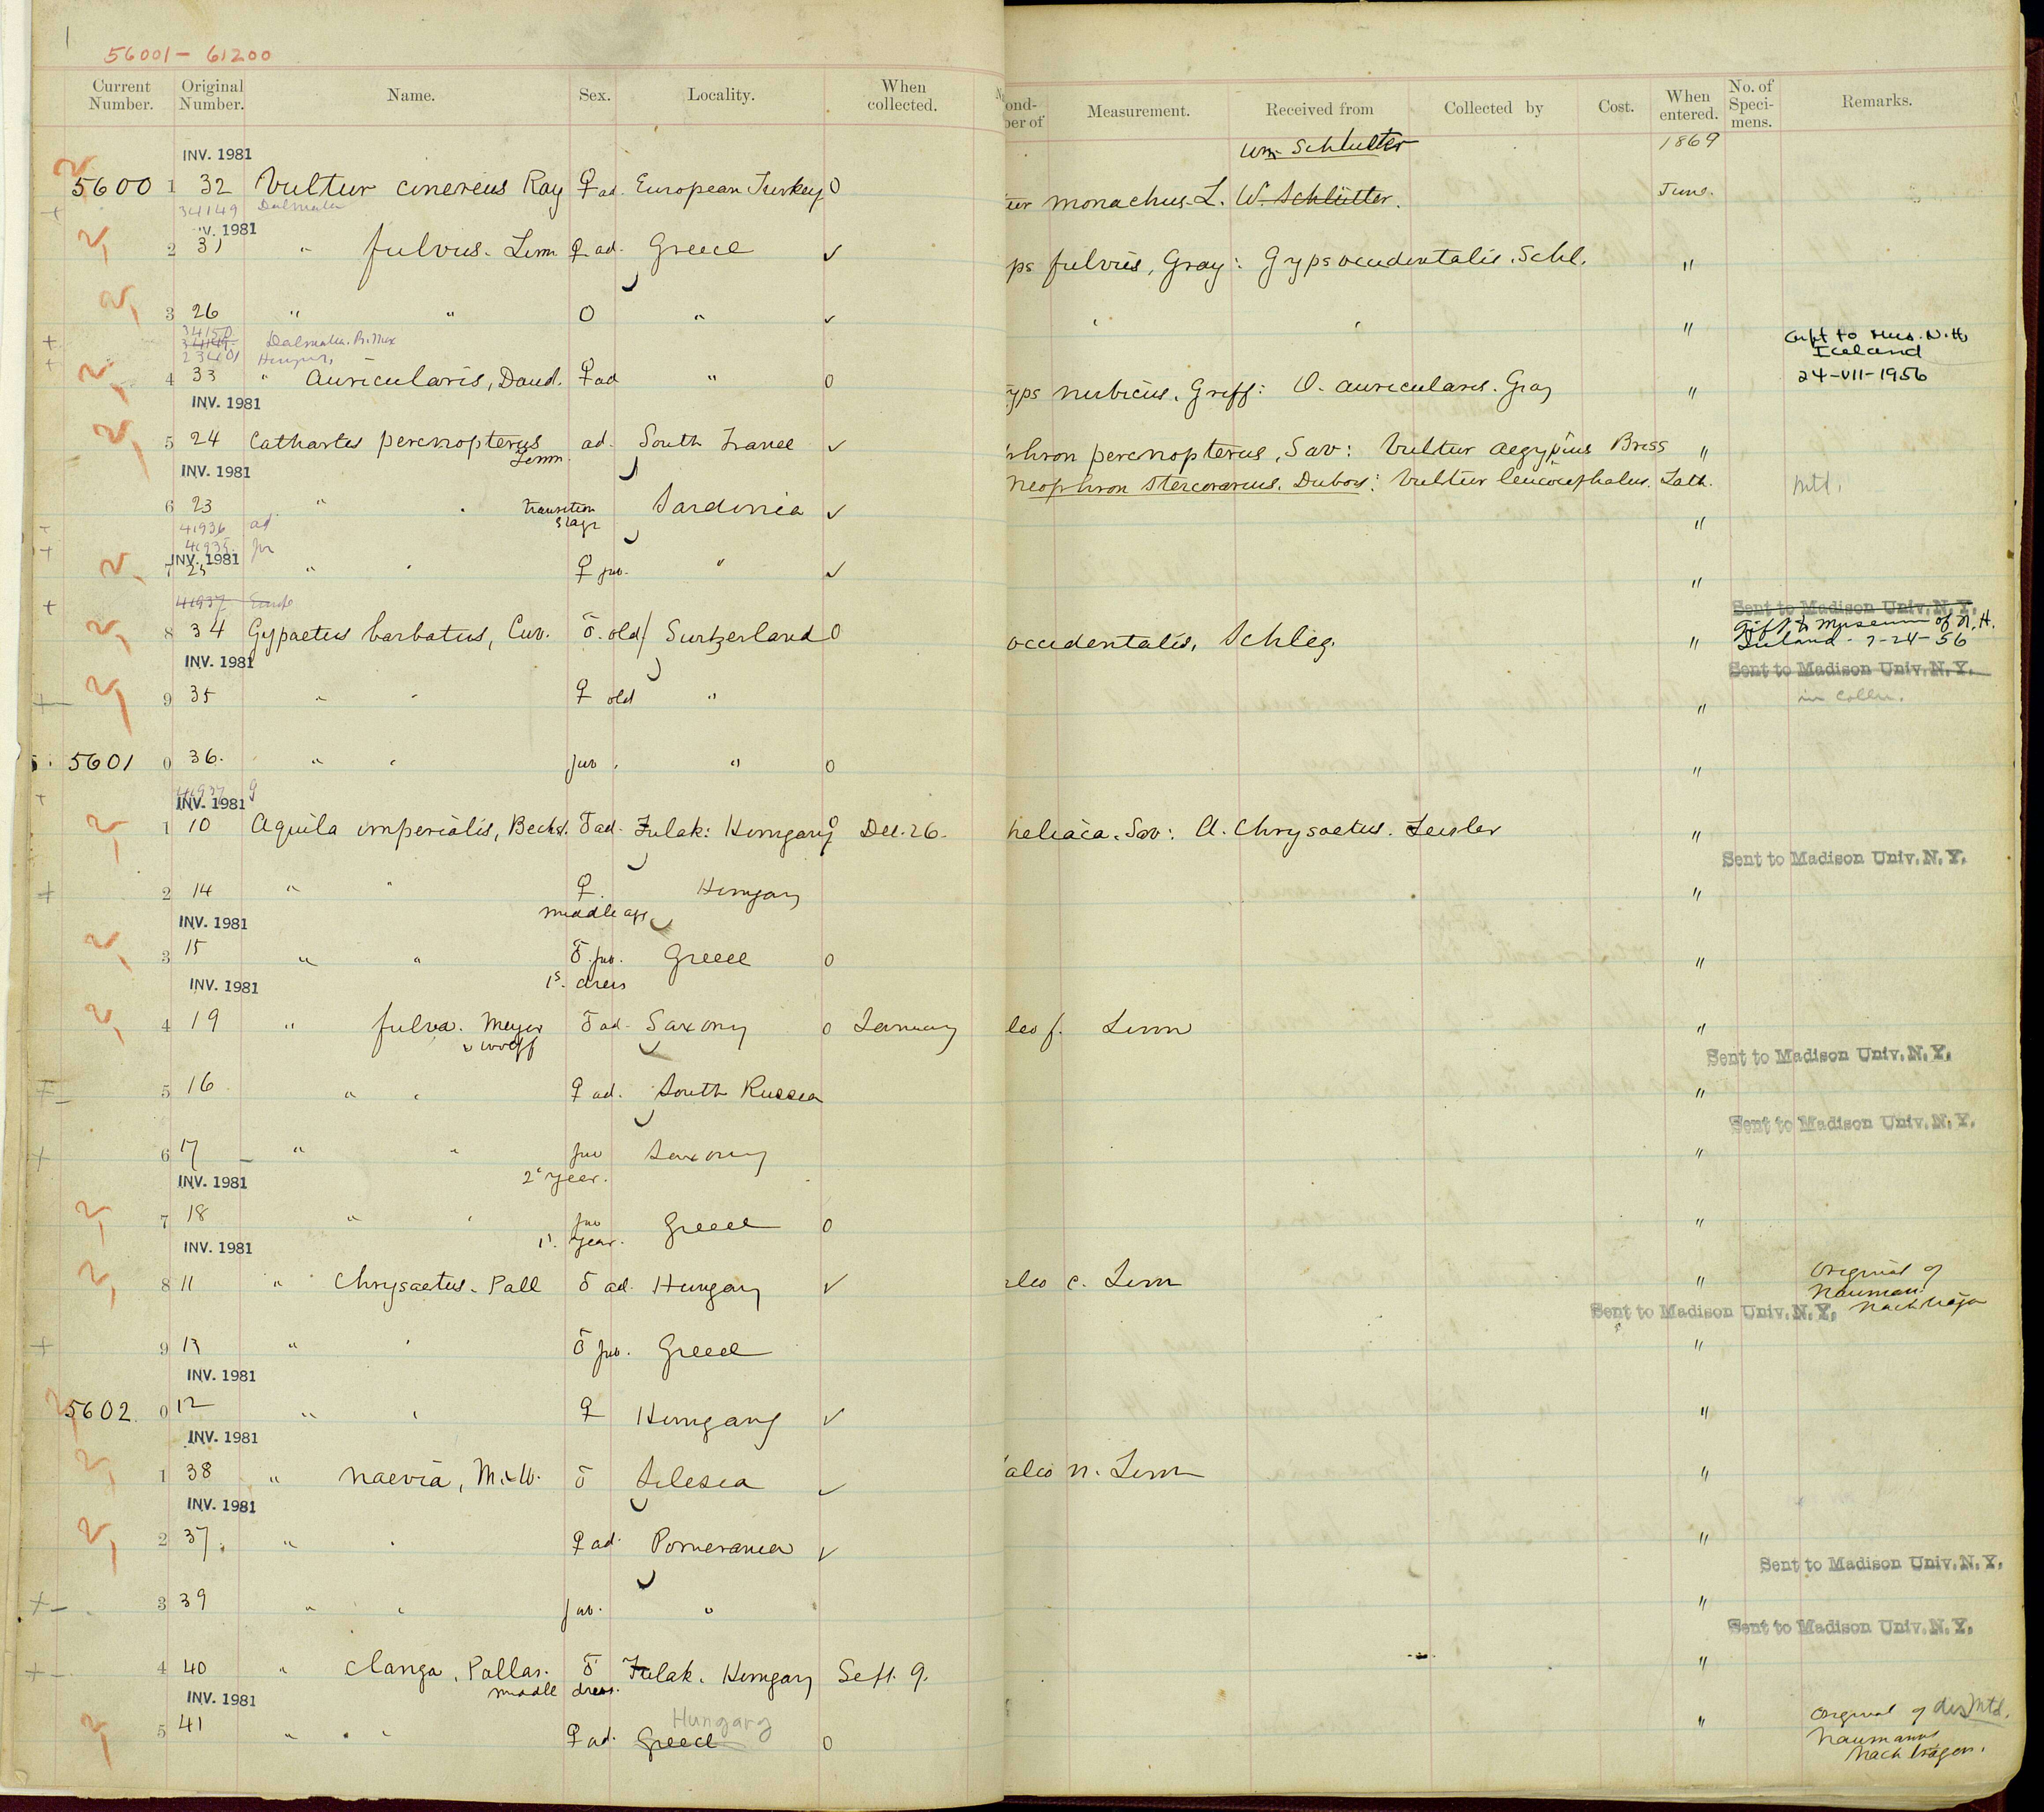 1
56001 - 61200
Current Number. Original Number. Name. Sex. Locality. When collected. ond- ber of Measurement. Received from Collected by Cost. When entered. No. of Speci- mens. Remarks.
INV. 1981 Wm Schlutter 1869
5600 1 32 Vultur cinereus Ray ♀ ad. European Turkey O monachus. L. W. Schlütter. June.
34149 Dalmatia
V. 1981
2 31 " fulvus. Linn ♀ ad. Greece ✓ ps fulvus, Gray: Gyps occidentalis. Schl. "
3 26 " " O " ✓ " " "
34150
Dalmatia.
23401
Gift to Mus. N.H.
Iceland
24-VII-1956
4 33 " auricularis, Daud. ♀ ad " O yps nubicus, Griff: O. auricularis. Gray "
INV. 1981
5 24 Cathartes percnopterus Linn. ad. South France ✓ phron percnopterus, Sav: Vultur aegypius Briss "
INV. 1981 Neophron stercorarius. Dubois: Vultur leucocephalus. Lath. Mtd.
6 23 " " transition stage Sardinia ✓ "
41936 ad
41935 jv
INV. 1981
7 25 " " ♀ juv. " ✓ "
41937 Europe
Sent to Madison Univ. N.Y.
8 34 Gypaetus barbatus, Cuv. ♂. old Switzerland O occidentalis, Schleg. " Gift to Museum of N.H.
Iceland - 7-24-56
INV. 1981 Sent to Madison Univ. N.Y.
9 35 " " ♀ old " " in colln.
5601 0 36. " " juv. " O "
41937
INV. 1981
1 10 Aquila imperialis, Bechst. ♂ ad. Fulak: Hungary O Dec. 26. heliaca. Sav: A. Chrysaetus. Leisler "
Sent to Madison Univ. N.Y.
2 14 " " ♀ middle age Hungary "
INV. 1981
3 15 " " ♂. juv. 1st. dress Greece O "
INV. 1981
4 19 " fulva. Meyer & Wolf ♂ ad. Saxony O January lco f. Linn "
Sent to Madison Univ. N.Y.
5 16 " " ♀ ad. South Russia "
Sent to Madison Univ. N.Y.
6 17 " " juv 2d year. Saxony "
INV. 1981
7 18 " " juv 1st. year. Greece O "
INV. 1981
8 11 " Chrysaetus. Pall ♂ ad. Hungary ✓ alco c. Linn " Original of
Naumann
Nachträge
Sent to Madison Univ. N.Y.
9 13 " " ♂ juv. Greece "
INV. 1981
5602. 0 12 " " ♀ Hungary ✓ "
INV. 1981
1 38 " naevia, M.&W. ♂ Silesia ✓ alco n. Linn "
INV. 1981
2 37. " " ♀ ad. Pomerania ✓ "
Sent to Madison Univ. N.Y.
3 39 " " juv. " "
Sent to Madison Univ. N.Y.
4 40 " clanga, Pallas. ♂ middle dress. Fulak. Hungary Sept. 9. "
INV. 1981
Hungary
5 41 " " ♀ ad. Greece O " Original of Mtd.
Naumanns
Nachträgen.